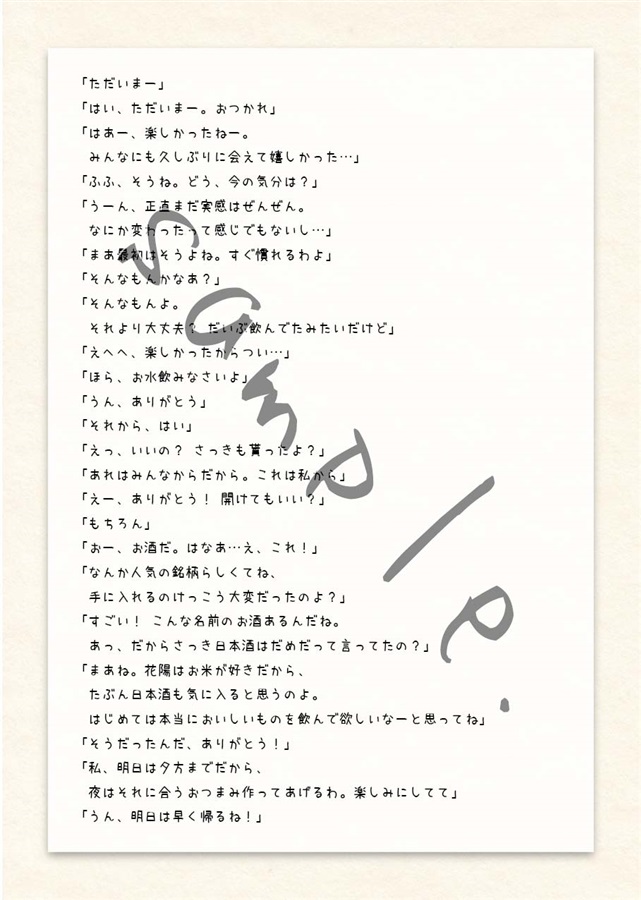 「ただいまー」
「はい、ただいまー。おつかれ」
「はあー、楽しかったねー。
みんなにも久しぶりに会えて嬉しかった…」
「ふふ、そうね。どう、今の気分は？」
「うーん、正直まだ実感はぜんぜん。
なにか変わったって感じでもないし…」
「まあ最初はそうよね。すぐ慣れるわよ」
「そんなもんかなあ？」
「そんなもんよ。
それより大丈夫？ だいぶ飲んでたみたいだけど」
「えへへ、楽しかったからつい…」
「ほら、お水飲みなさいよ」
「うん、ありがとう」
「それから、はい」
「えっ、いいの？ さっきも貰ったよ？」
「あれはみんなからだから。これは私から」
「えー、ありがとう！ 開けてもいい？」
「もちろん」
「おー、お酒だ。はなあ…え、これ！」
「なんか人気の銘柄らしくてね、
手に入れるのけっこう大変だったのよ？」
「すごい！ こんな名前のお酒あるんだね。
あっ、だからさっき日本酒はだめだって言ってたの？」
「まあね。花陽はお米が好きだから、
たぶん日本酒も気に入ると思うのよ。
はじめては本当においしいものを飲んで欲しいなーと思ってね」
「そうだったんだ、ありがとう！」
「私、明日は夕方までだから、
夜はそれに合うおつまみ作ってあげるわ。楽しみにしてて」
「うん、明日は早く帰るね！」
sample.